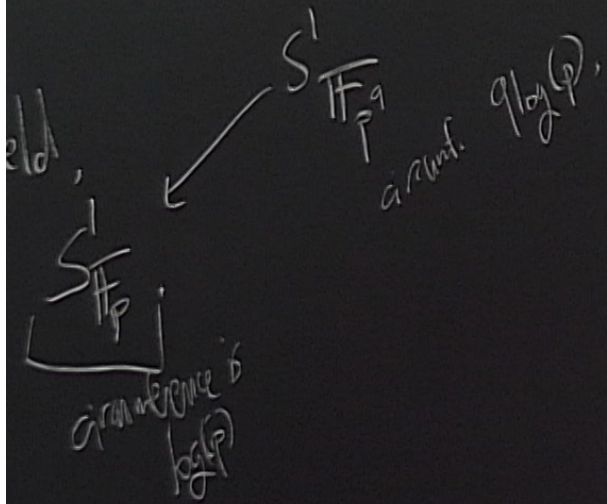 S^1_{F_{p^q}}
circumf. q log(p).
eld,
S^1_{F_p}.
circumference is
log(p)